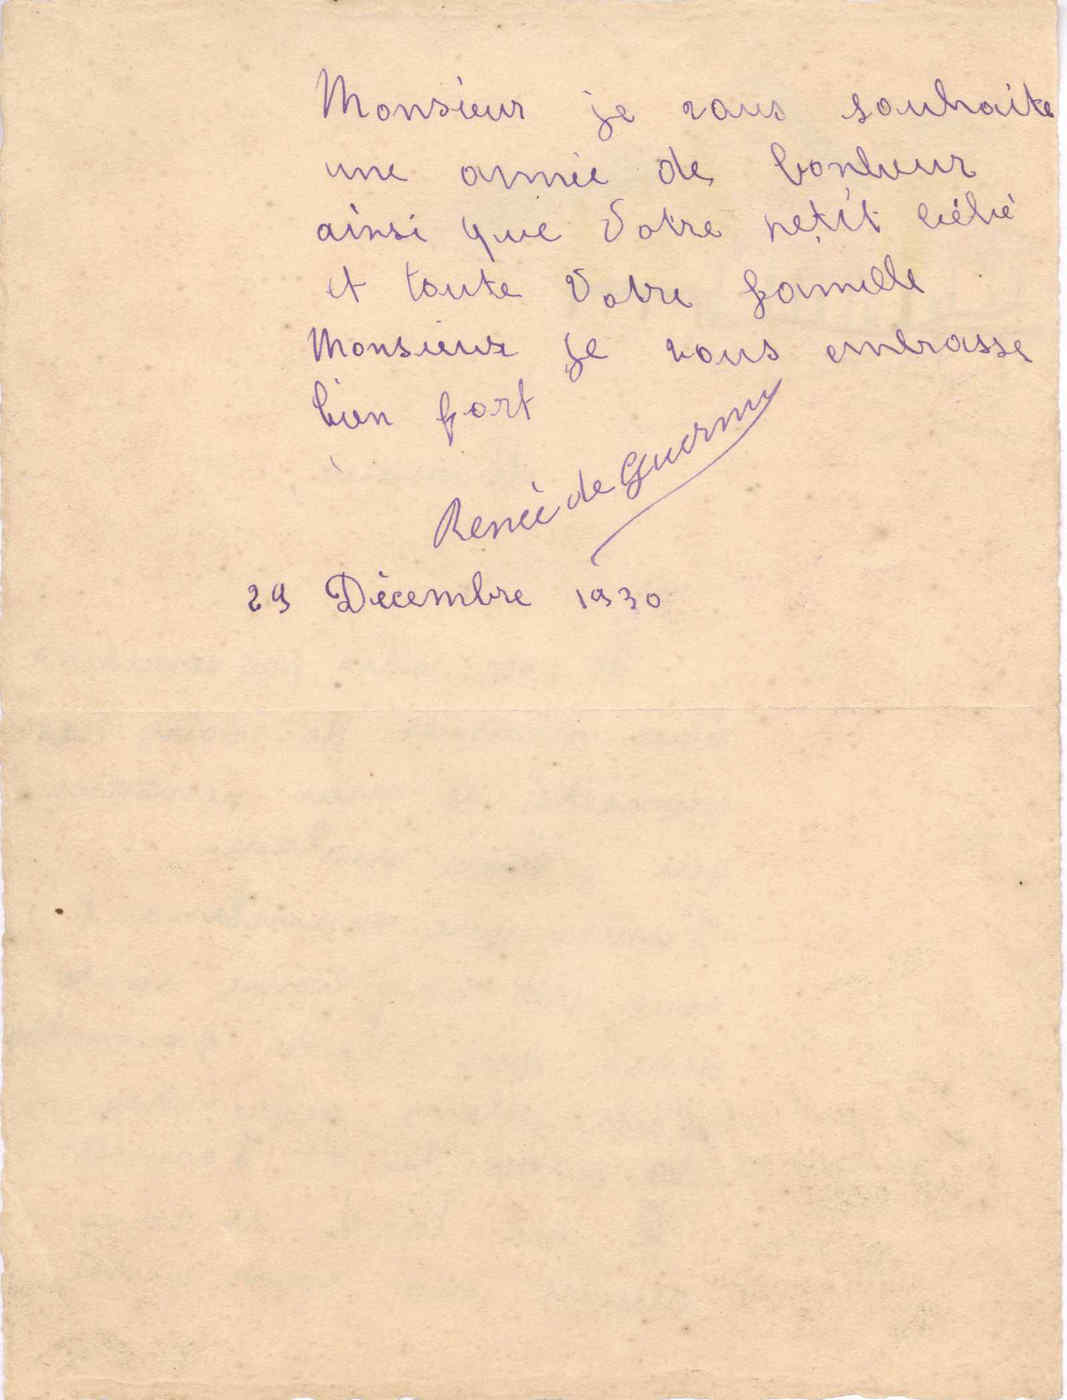 Monsieur je vous souhaite
une année de bonheur
ainsi que Votre petit bébé
et toute Votre famille
Monsieur je vous embrasse
bien fort
Renée de Guermy
29 Décembre 1930